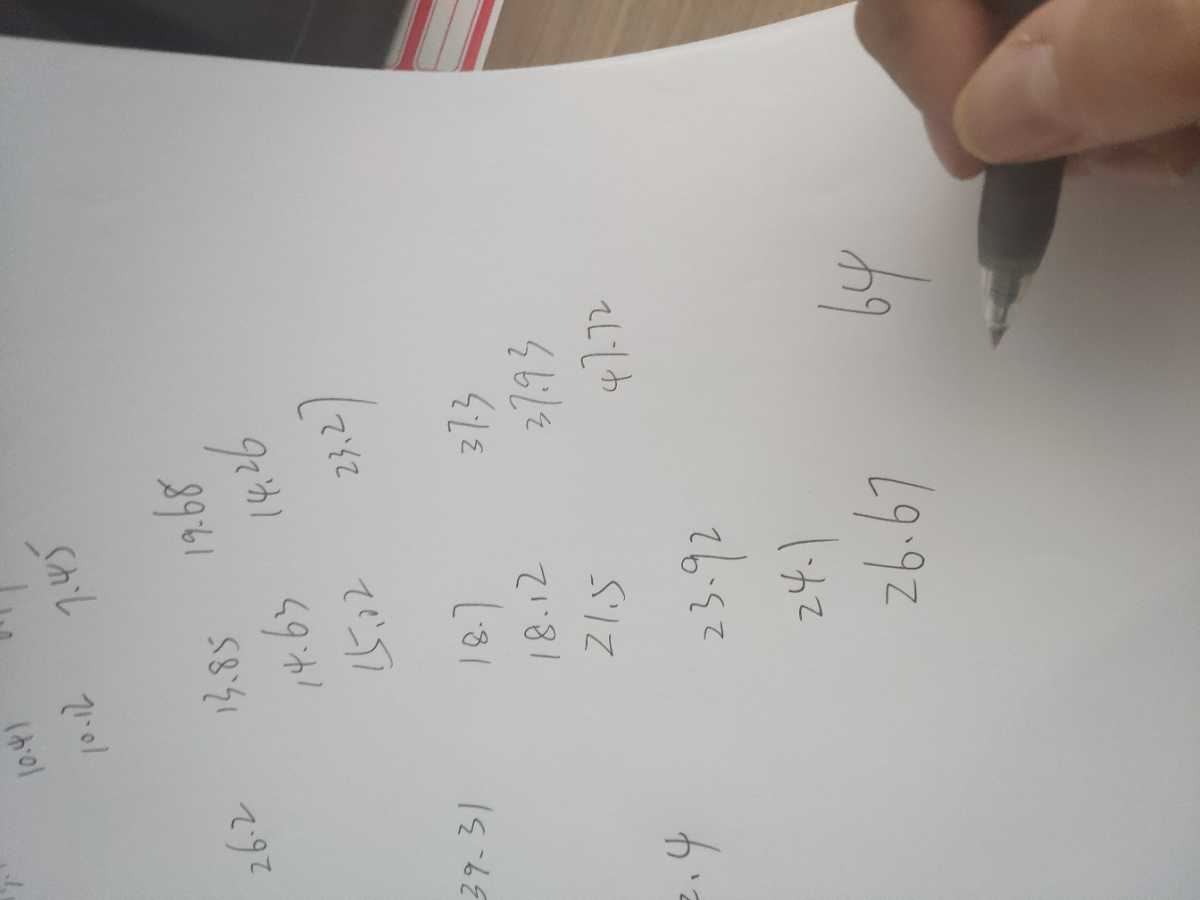 10.41
10.12 7.45
26.2 13.85 19.68
14.63 14.26
15.02 23.27
39.31 18.7 37.3
18.12 37.93
21.5 47.72
23.92
24.1
26.67 64